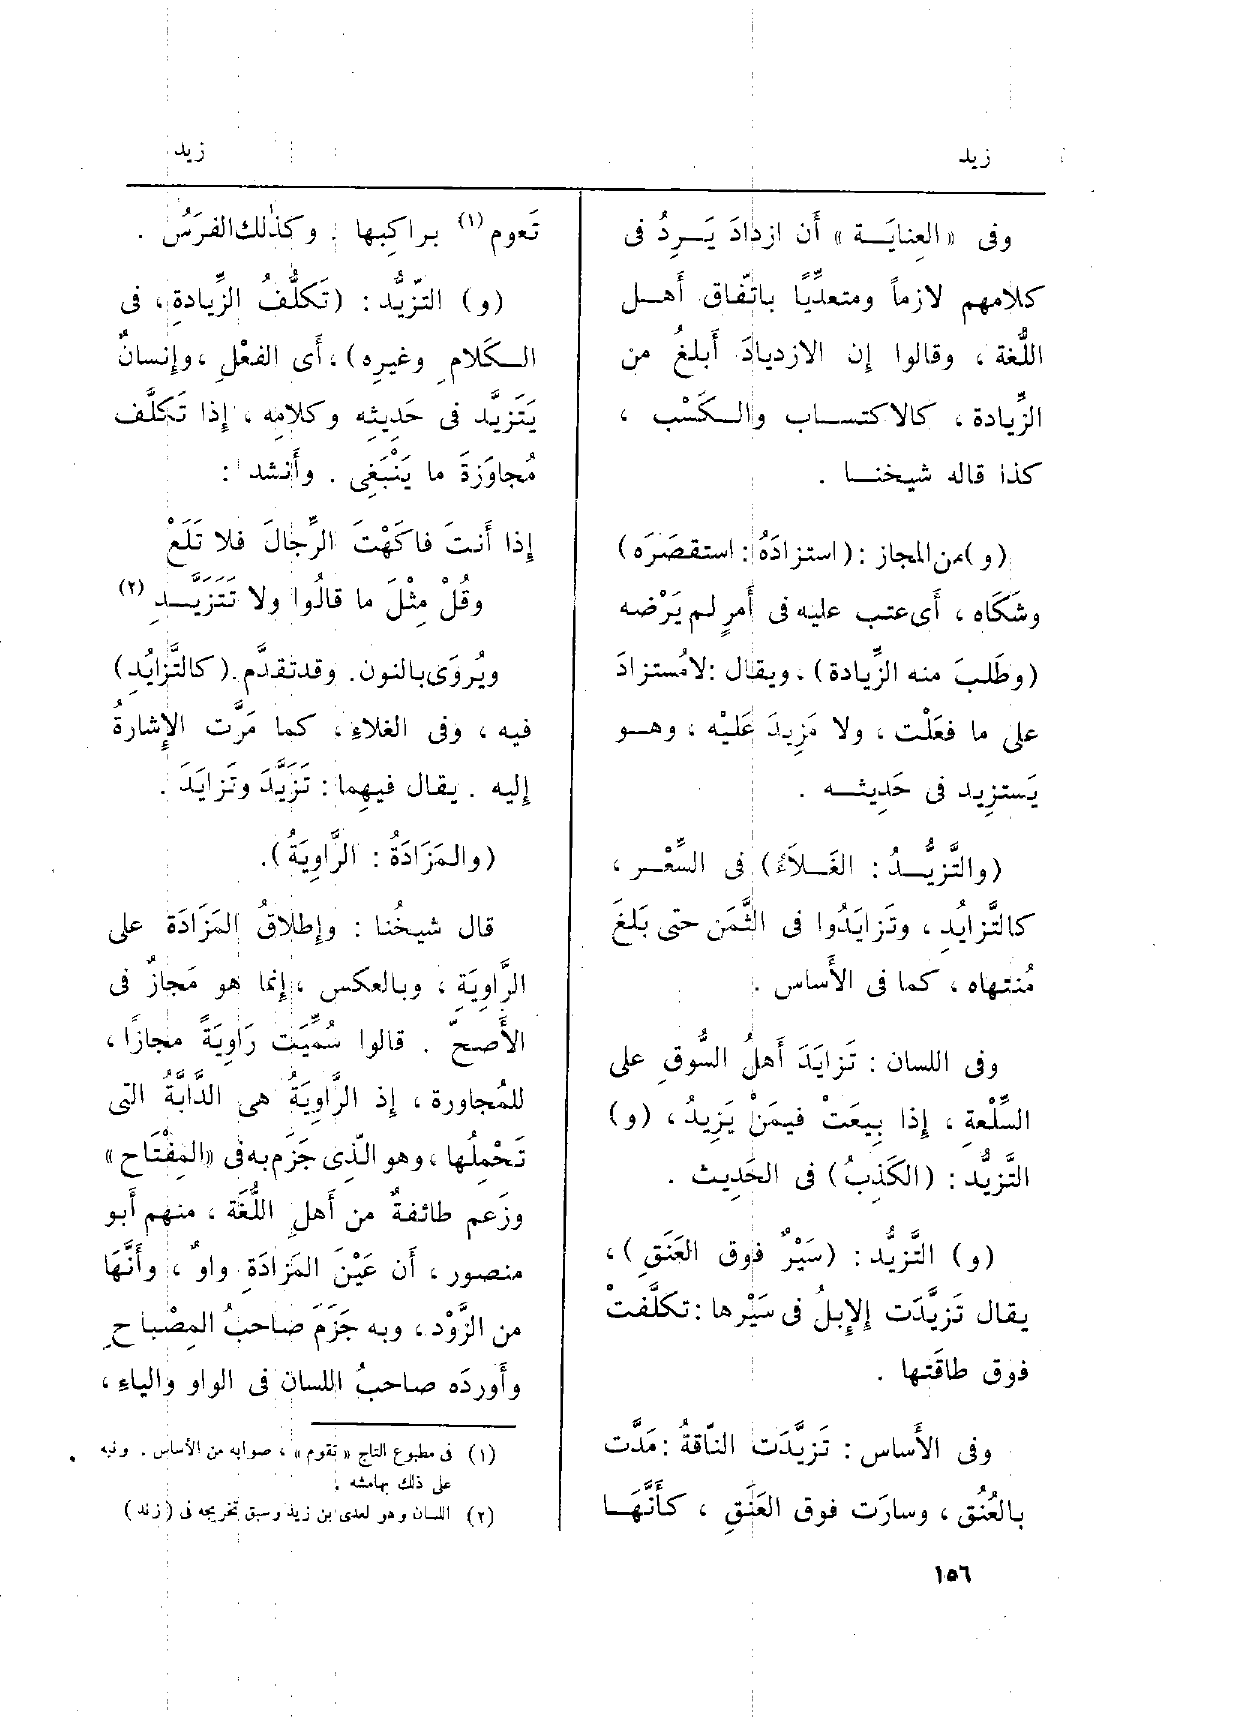 زيد
زيد
وفى «العنايـــة» أَن ازدادَ يَـــرِدُ فى
كلامهم لازماً ومتعدِّيًا باتّفاق أَهـــل
اللُّغة ، وقالوا إن الازديادَ أَبلغُ من
الزِّيادة ، كالاكتســـاب والـــكَسْب ،
كذا قاله شيخنـــا .
(و)من المجاز :(استزادَهُ : استقصَرَه)
وشَكَاه ، أَى عتب عليه فى أَمرٍ لم يَرْضه
(وطَلَبَ منه الزِّيادة) ، ويقال :لامُستزادَ
على ما فعَلْت ، ولا مَزِيدَ عَلَيْه ، وهـــو
يَستزيد فى حَدِيثـــه .
(والتَّزيُّـــدُ : الغَـــلاَءُ) فى السِّعْـــر ،
كالتَّزايُدِ ، وتَزايَدُوا فى الثَّمَن حتى بَلَغَ
مُنتهاه ، كما فى الأَساس .
وفى اللسان : تَزايَدَ أَهلُ السُّوقِ على
السِّلْعةِ ، إِذا بِيعَتْ فيمَنْ يَزِيدُ ، (و)
التَّزيُّد : (الكَذِبُ) فى الحَدِيث .
(و) التَّزيُّد : (سَيْرٌ فوق العَنَقِ) ،
يقال تَزيَّدَت الإِبلُ فى سَيْرها :تكلَّفتْ
فوق طاقَتها .
وفى الأَساس : تَزيَّدَت النّاقةُ :مَدَّت
بالعُنُق ، وسارَت فوق العَنَقِ ، كأَنَّهَـــا
تَعوم (١) براكِبها . وكذٰلك الفَرَسُ .
(و) التّزيُّد : (تَكلُّفُ الزِّيادةِ ، فى
الـــكَلامِ وغيرِه) ، أَى الفعْلِ ،وإِنسانٌ
يَتَزيَّد فى حَدِيثِه وكلامِه ، إِذا تَكلَّف
مُجاوَزةَ ما يَنْبَغِى . وأَنشد :
إِذا أَنتَ فاكَهْتَ الرِّجالَ فلا تَلَعْ
وقُلْ مِثْلَ ما قالُوا ولا تَتَزَيَّـــدِ (٢)
ويُروَى بالنون. وقد تقدَّم.(كالتَّزايُدِ)
فيه ، وفى الغلاءِ ، كما مَرَّت الإِشارةُ
إِليه . يقال فيهِما : تَزَيَّدَ وتَزايَدَ .
(والمَزَادَةُ : الرَّاوِيَةُ).
قال شيخُنا : وإِطلاقُ المَزَادَة على
الرَّاوِيَةِ ، وبالعكس ، إِنما هو مَجازٌ فى
الأَصحّ . قالوا سُمِّيَت رَاوِيَةً مجازًا ،
للمُجاورة ، إِذ الرَّاوِيَةُ هى الدَّابَّةُ التى
تَحْمِلُها ، وهو الَّذِى جَزَم به فى «المِفْتَاح»
وزَعم طائفةٌ من أَهلِ اللُّغَة ، منهم أَبو
منصور ، أَن عَيْنَ المَزادَةِ واوٌ ، وأَنَّهَا
من الزَّوْد ، وبه جَزَمَ صاحبُ المِصْباحِ
وأَوردَه صاحبُ اللسان فى الواو والياءِ ،
(١) فى مطبوع التاج « تقوم » ، صوابه من الأساس . ونبه
على ذلك بهامشه .
(٢) اللسان وهو لعدى بن زيد وسبق تخريجه فى (زند)
١٥٦